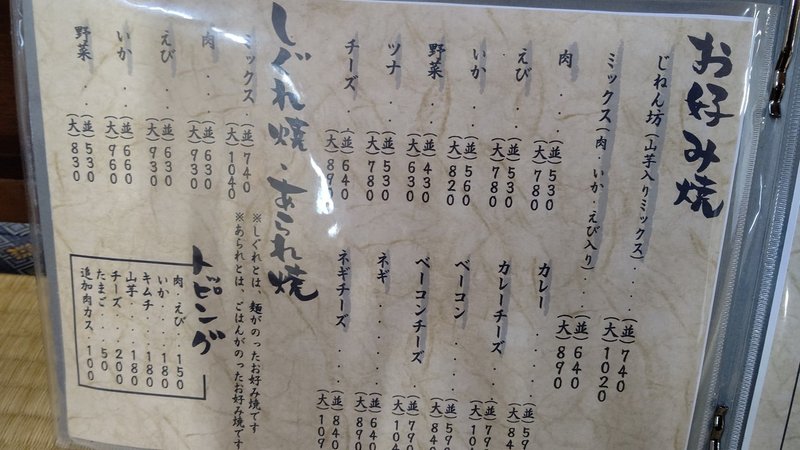 お好み焼
じねん坊(山芋入りミックス)‥(並)740
(大)1020
ミックス(肉・いか・えび入り)‥(並)640
(大)890
肉‥(並)530
(大)780
えび‥(並)530
(大)780
いか‥(並)560
(大)820
野菜‥(並)430
(大)630
ツナ‥(並)530
(大)780
チーズ‥(並)640
(大)
カレー‥(並)
(大)
カレーチーズ‥(並)
(大)
ベーコン‥(並)
(大)840
ベーコンチーズ‥(並)790
(大)
ネギ‥(並)640
(大)
ネギチーズ‥(並)840
(大)
しぐれ焼・あられ焼
※しぐれとは、麺がのったお好み焼です
※あられとは、ごはんがのったお好み焼です
ミックス‥(並)740
(大)1040
肉‥(並)630
(大)930
えび‥(並)630
(大)930
いか‥(並)660
(大)960
野菜‥(並)530
(大)830
トッピング
肉 えび 150
いか 180
キムチ 180
山芋 180
チーズ 200
たまご 50
追加肉カス 100